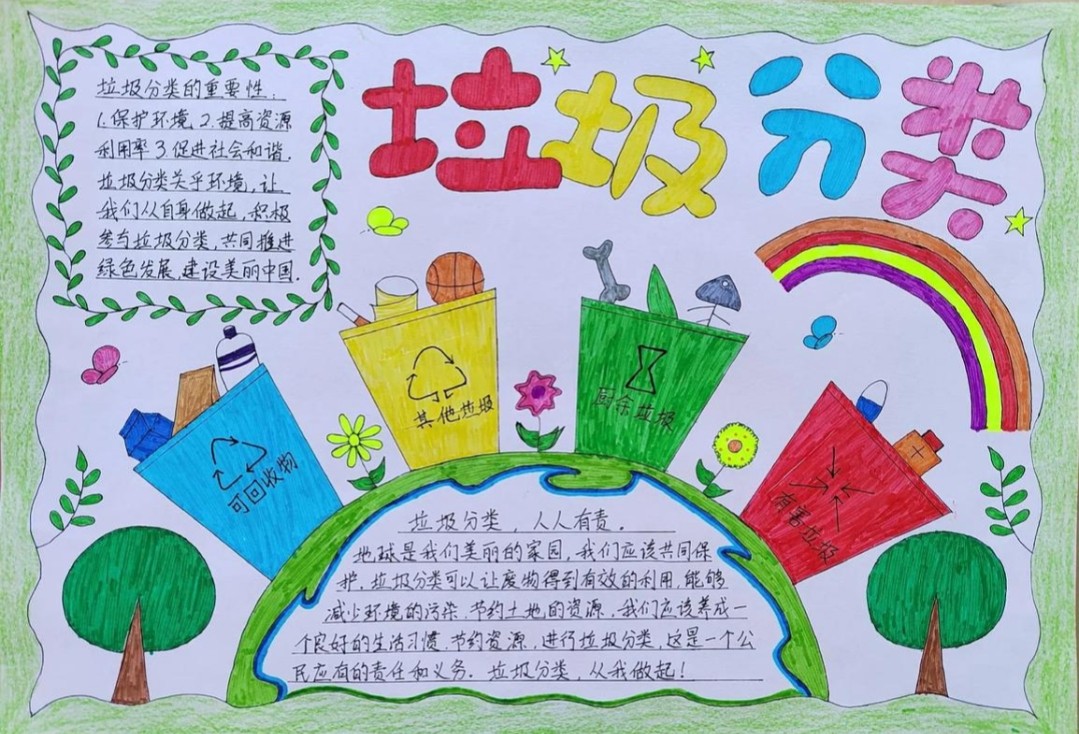 垃圾分类
垃圾分类的重要性:
1.保护环境 2.提高资源
利用率 3促进社会和谐.
垃圾分类关乎环境,让
我们从自身做起,积极
参与垃圾分类,共同推进
绿色发展,建设美丽中国.
其他垃圾
厨余垃圾
可回收物
有害垃圾
垃圾分类,人人有责.
地球是我们美丽的家园,我们应该共同保
护.垃圾分类可以让废物得到有效的利用,能够
减少环境的污染.节约土地的资源.我们应该养成一
个良好的生活习惯.节约资源.进行垃圾分类,这是一个公
民应有的责任和义务.垃圾分类,从我做起!